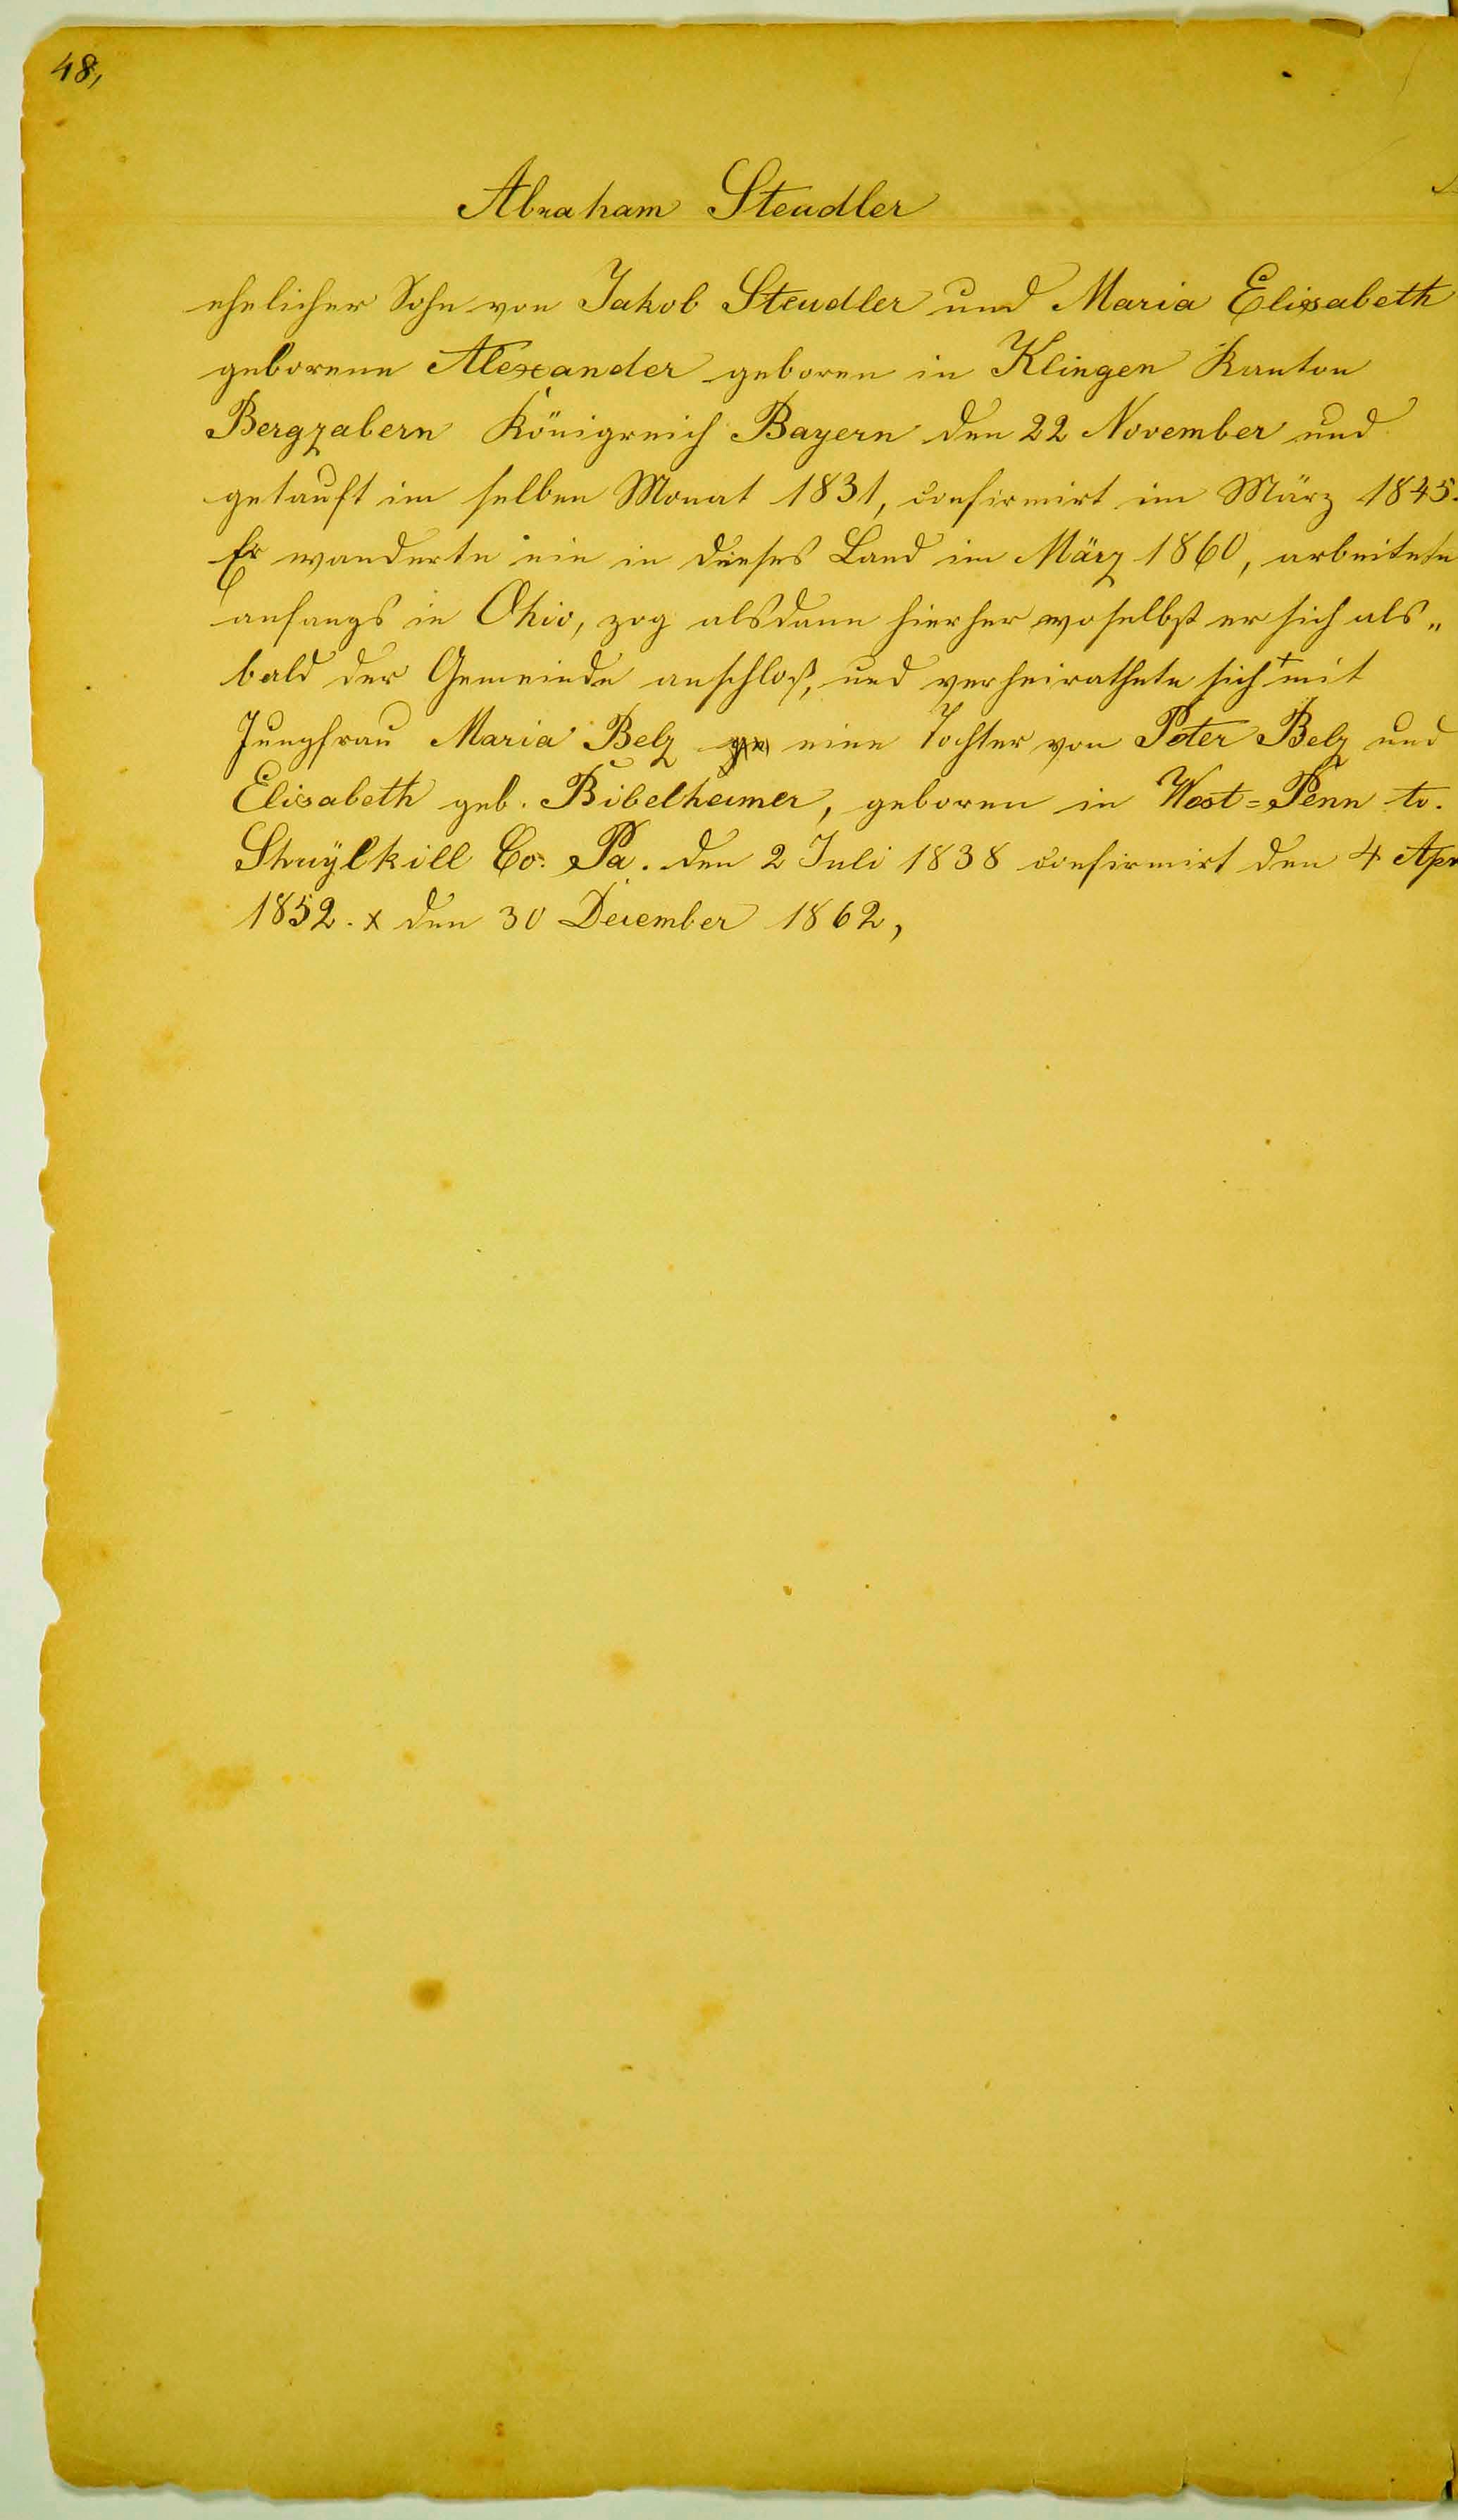 48,
Abraham Steudler
ehelicher Sohn von Jakob Steudler und Maria Elisabeth
geborene Alexander geboren in Klingen Kanton
Bergzabern Königreich Bayern den 22 November und
getauft im selben Monat 1831, confirmirt im März 1845.
Er wanderte ein in dieses Land im März 1860, arbeitete
anfangs in Ohio, zog alsdann hierher woselbst er sich als„
bald der Gemeinde anschloß, und verheirathete sich + mit
Jungfrau Maria Belz eine Tochter von Peter Belz und
Elisabeth geb. Bibelheimer, geboren in West=Penn to.
Shuÿlkill Co: Pa. den 2 Juli 1838 confirmirt den 4 Apr
1852. x den 30 December 1862,